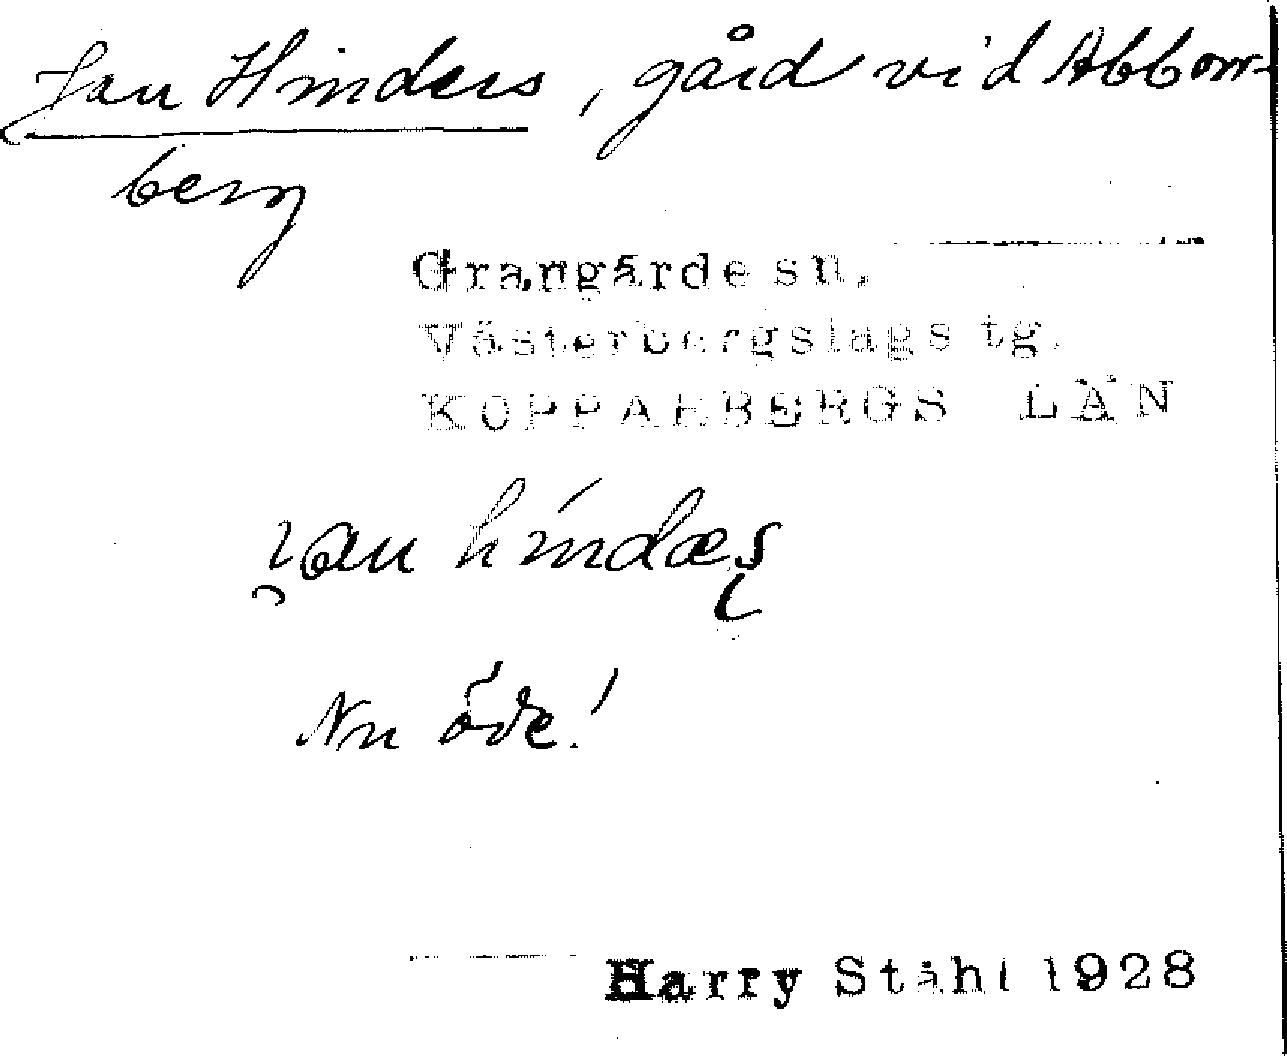 Jan Hinders, gård vid Abborr-
berg
Grangärde sn.
Västerbergslags tg.
KOPPARBERGS LÄN
Nu öde!
Harry Ståhl 1928